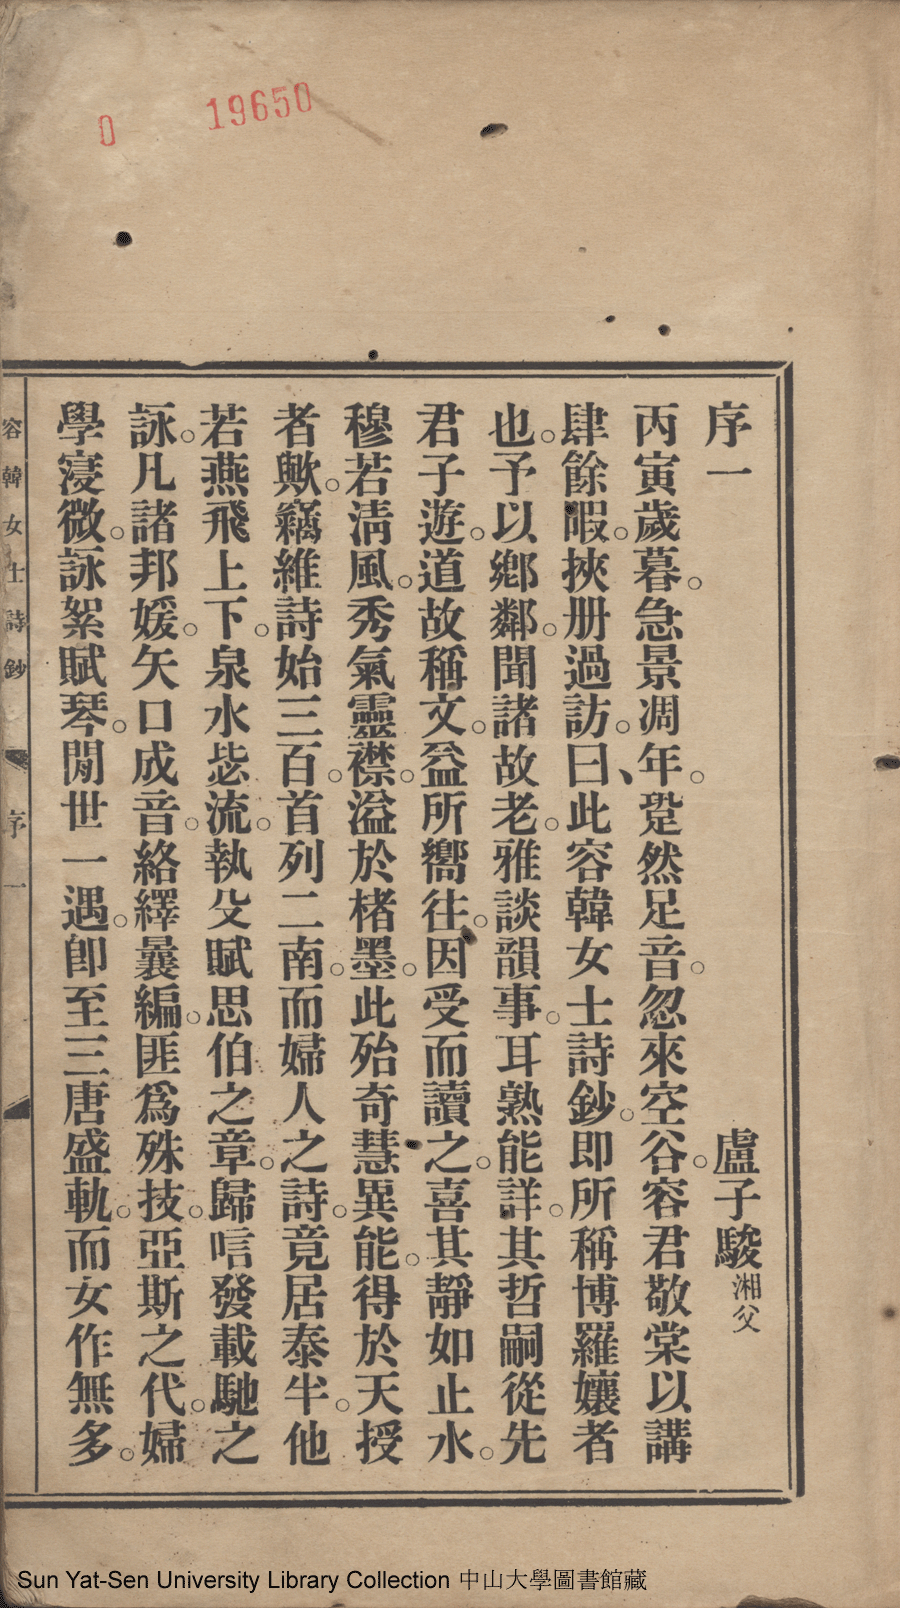 0 19650
序一
盧子駿湘父
丙寅歲暮。急景凋年。跫然足音。忽來空谷。容君敬棠以講
肆餘暇。挾册過訪。曰、此容韓女士詩鈔。即所稱博羅孃者
也。予以鄉鄰。聞諸故老。雅談韻事。耳熟能詳。其哲嗣從先
君子遊。道故稱文。益所嚮往。因受而讀之。喜其靜如止水。
穆若淸風。秀氣靈襟。溢於楮墨。此殆奇慧異能。得於天授
者歟。竊維詩始三百。首列二南。而婦人之詩。竟居泰半。他
若燕飛上下。泉水毖流。執殳賦思伯之章。歸唁發載馳之
詠。凡諸邦媛。矢口成音。絡繹曩編。匪爲殊技。亞斯之代。婦
學寖微。詠絮賦琴。閒世一遇。卽至三唐盛軌。而女作無多。
容韓女士詩鈔 序 一
Sun Yat-Sen University Library Collection 中山大學圖書館藏